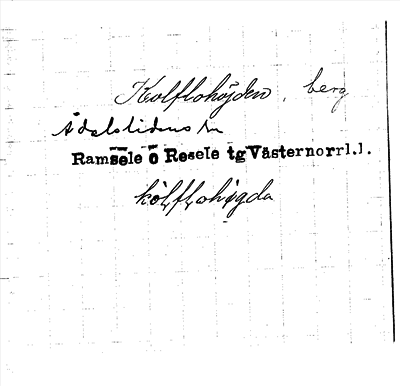 Kolflohöjden, berg
Ådalslidens sn
Ramsele o Resele tg Västernorrl.l.
kòl̥f̥l̥ohi̥gda